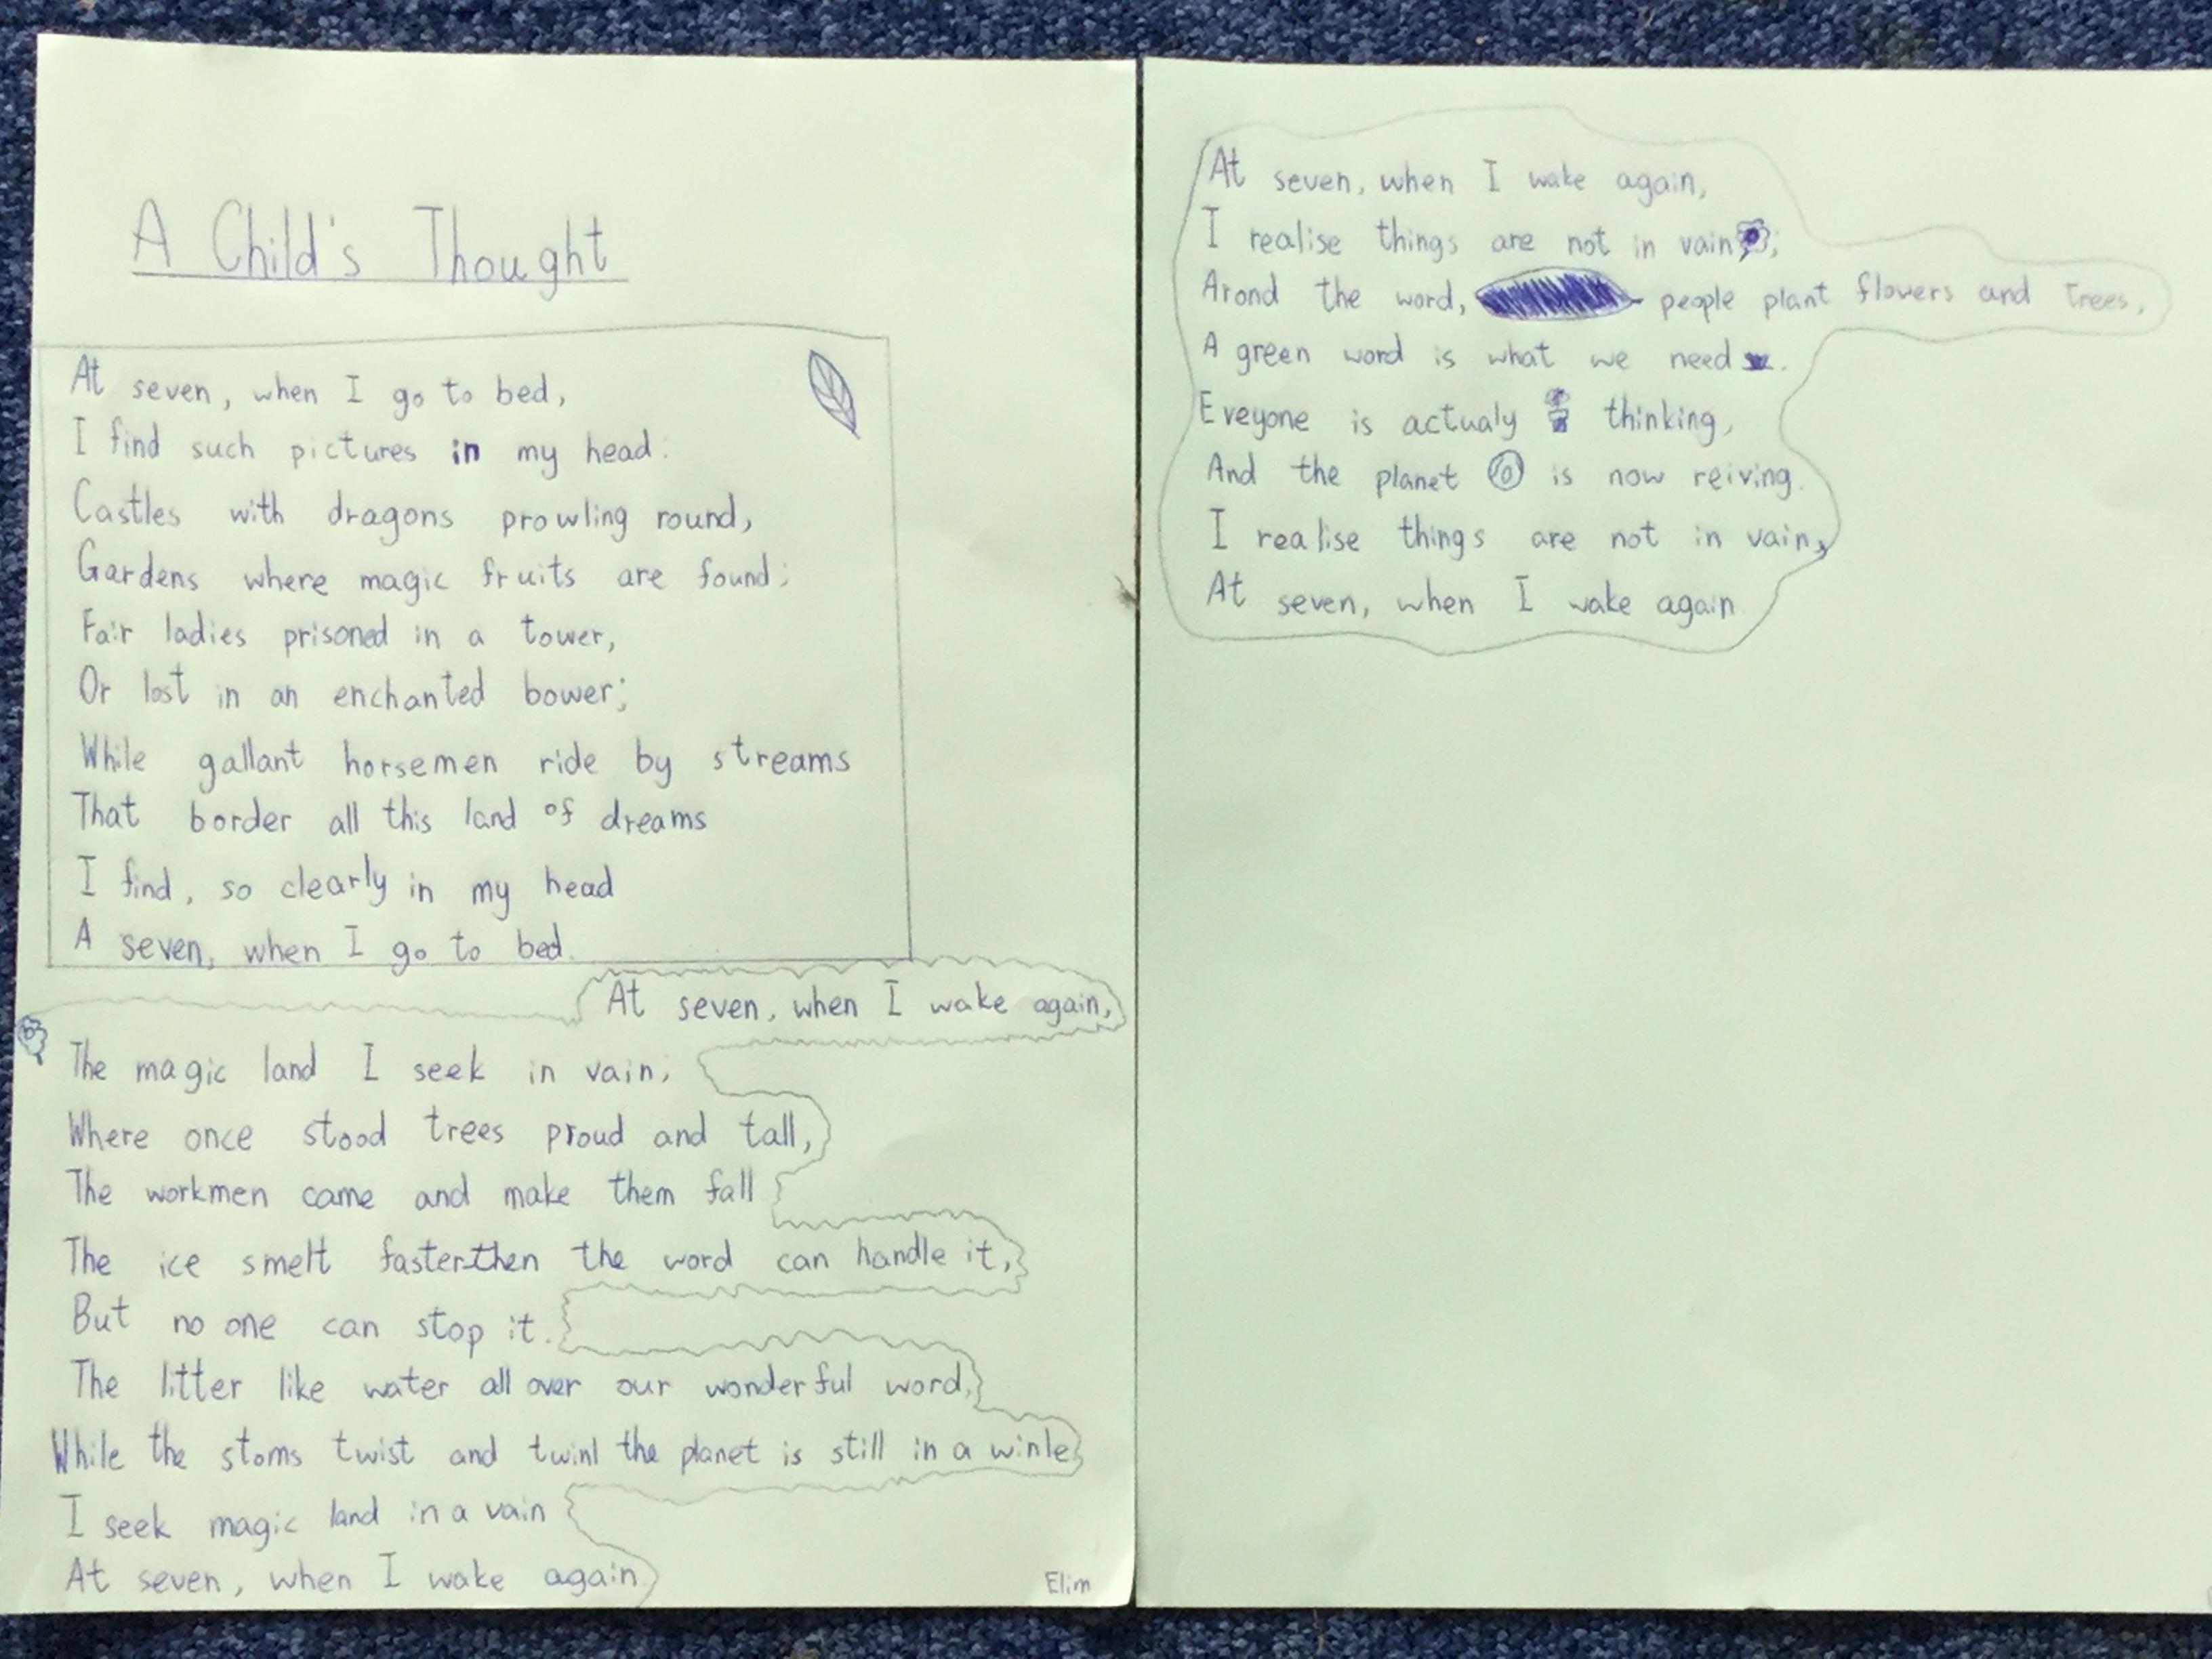 A Child's Thought
At seven, when I go to bed,
I find such pictures in my head:
Castles with dragons prowling round,
Gardens where magic fruits are found;
Fair ladies prisoned in a tower,
Or lost in an enchanted bower;
While gallant horsemen ride by streams
That border all this land of dreams
I find, so clearly in my head
A seven, when I go to bed.
At seven, when I wake again,
The magic land I seek in vain;
Where once stood trees proud and tall,
The workmen came and make them fall
The ice smelt faster then the word can handle it,
But no one can stop it.
The litter like water all over our wonderful word,
While the stoms twist and twinl the planet is still in a winle
I seek magic land in a vain
At seven, when I wake again.
Elim
At seven, when I wake again,
I realise things are not in vain;
Arond the word, people plant flowers and trees,
A green word is what we need.
Eveyone is actualy thinking,
And the planet is now reiving.
I realise things are not in vain,
At seven, when I wake again